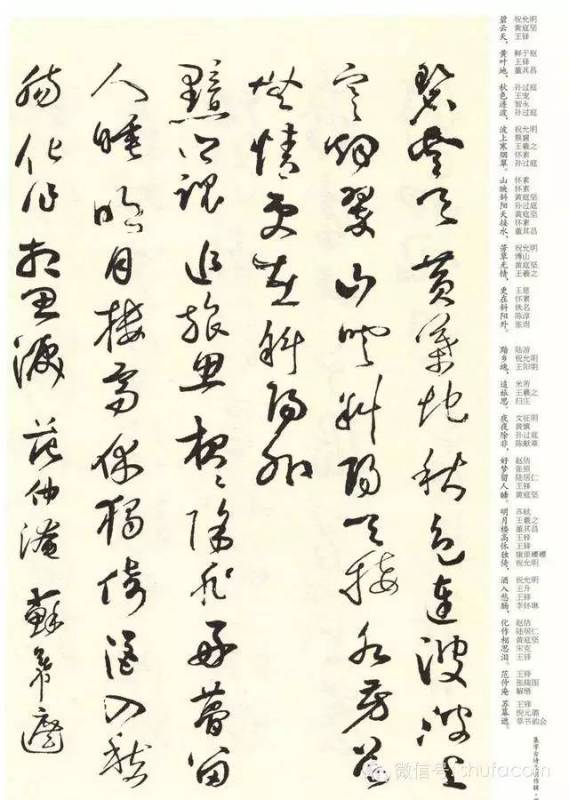 碧雲天黄葉地秋色連波波上
寒烟翠山映斜陽天接水芳草
無情更在斜陽外
黯鄉魂追旅思夜〻除非好夢留
人睡明月樓高休獨倚酒入愁
腸化作相思淚 范仲淹 蘇幕遮
碧云天，
祝允明
黄庭坚
王铎
黄叶地。
鲜于枢
王铎
董其昌
秋色连波，
孙过庭
王宠
智永
孙过庭
波上寒烟翠。
祝允明
蔡襄
王羲之
怀素
孙过庭
山映斜阳天接水，
怀素
怀素
黄庭坚
孙过庭
黄庭坚
怀素
董其昌
芳草无情，
祝允明
傅山
黄庭坚
王羲之
更在斜阳外。
王慈
怀素
佚名
陈淳
张雨
黯乡魂，
陆游
祝允明
王阳明
追旅思。
米芾
王羲之
归庄
夜夜除非，
文征明
黄慎
孙过庭
陈献章
好梦留人睡。
赵佶
张照
陆居仁
王铎
黄庭坚
明月楼高休独倚，
苏轼
王羲之
董其昌
王铎
王铎
康里巎巎
祝允明
酒入愁肠，
祝允明
王升
王铎
李怀琳
化作相思泪。
赵佶
陆居仁
黄庭坚
宋克
王铎
范仲淹
王铎
张瑞图
解缙
苏幕遮。
王铎
倪元璐
草书韵会
微信号：shufacom